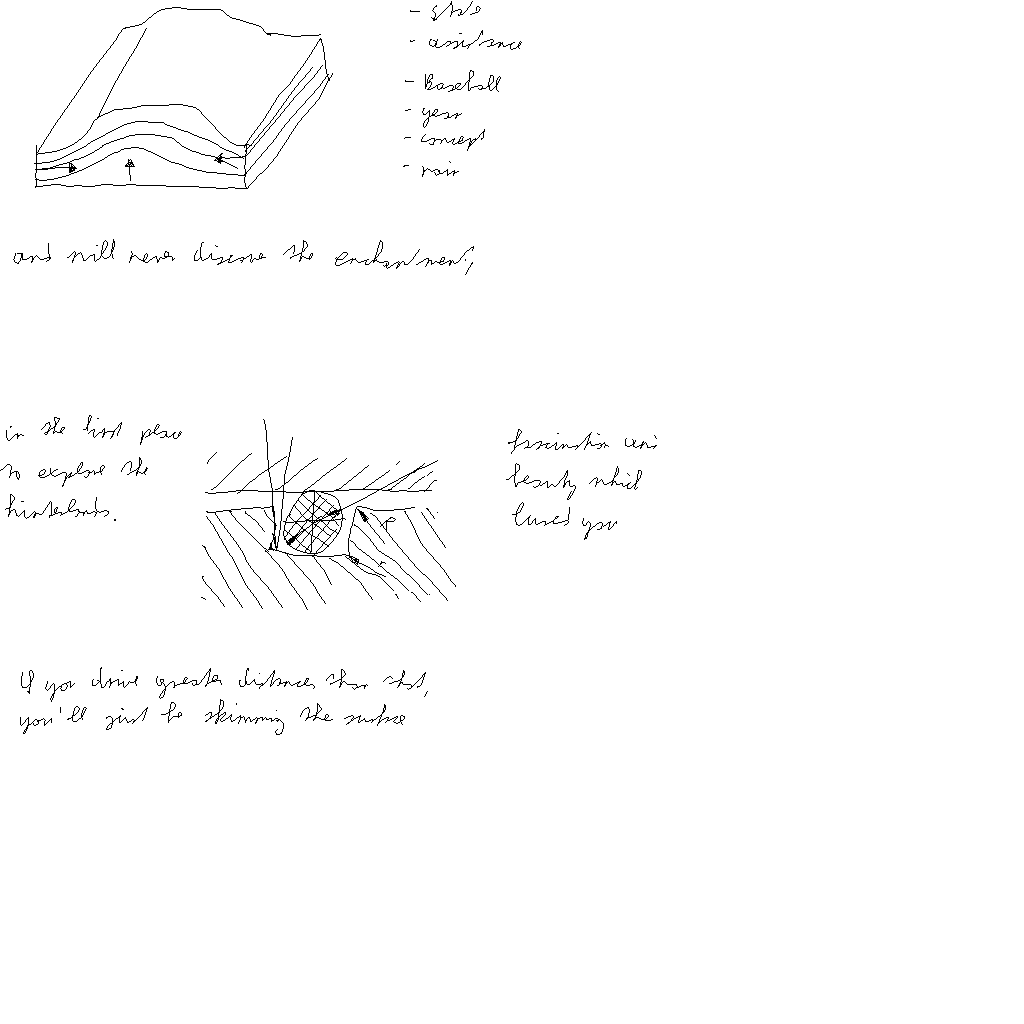 - state
- assistance
- Baseball
- year
- concept
- rain
and will never discover the enchantment,
in the first place
to explore the
hinterlands.
r
fascination and
beauty which
lured you
If you drive greater distances than that,
you'll just be skimming the surface